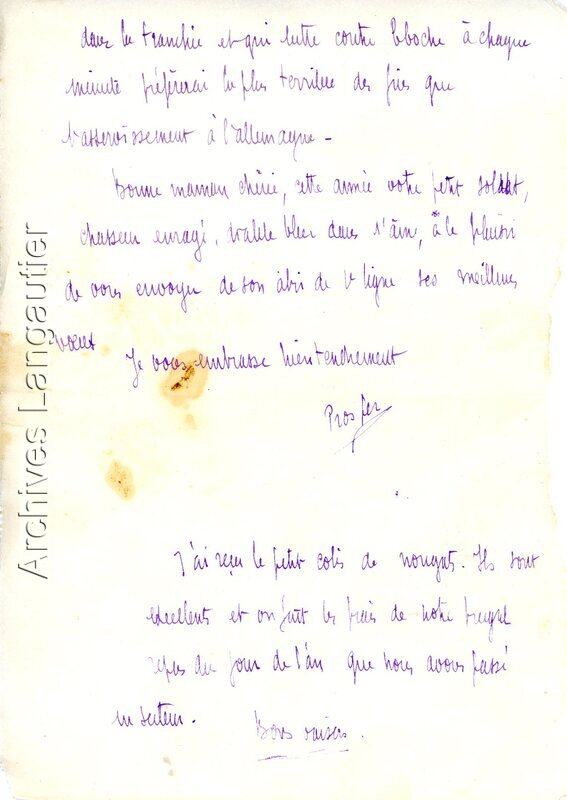 dans la tranchée et qui lutte contre l boche à chaque
minute préfèrerai la plus terrible des fins que
l'asservissement à l'allemagne -
Bonne maman chérie, cette année votre petit soldat,
chasseur enragé, diable bleu dans l'âme, à le plaisir
de vous envoyer de son abri de 1e ligne ses meilleurs
vœux
Je vous embrasse bien tendrement
Prosper
J'ai reçu le petit colis de nougats. Ils sont
excellents et on fait les frais de notre frugal
repas du jour de l'an que nous avons passé
en secteur.
Bons baisers.
Archives Langautier